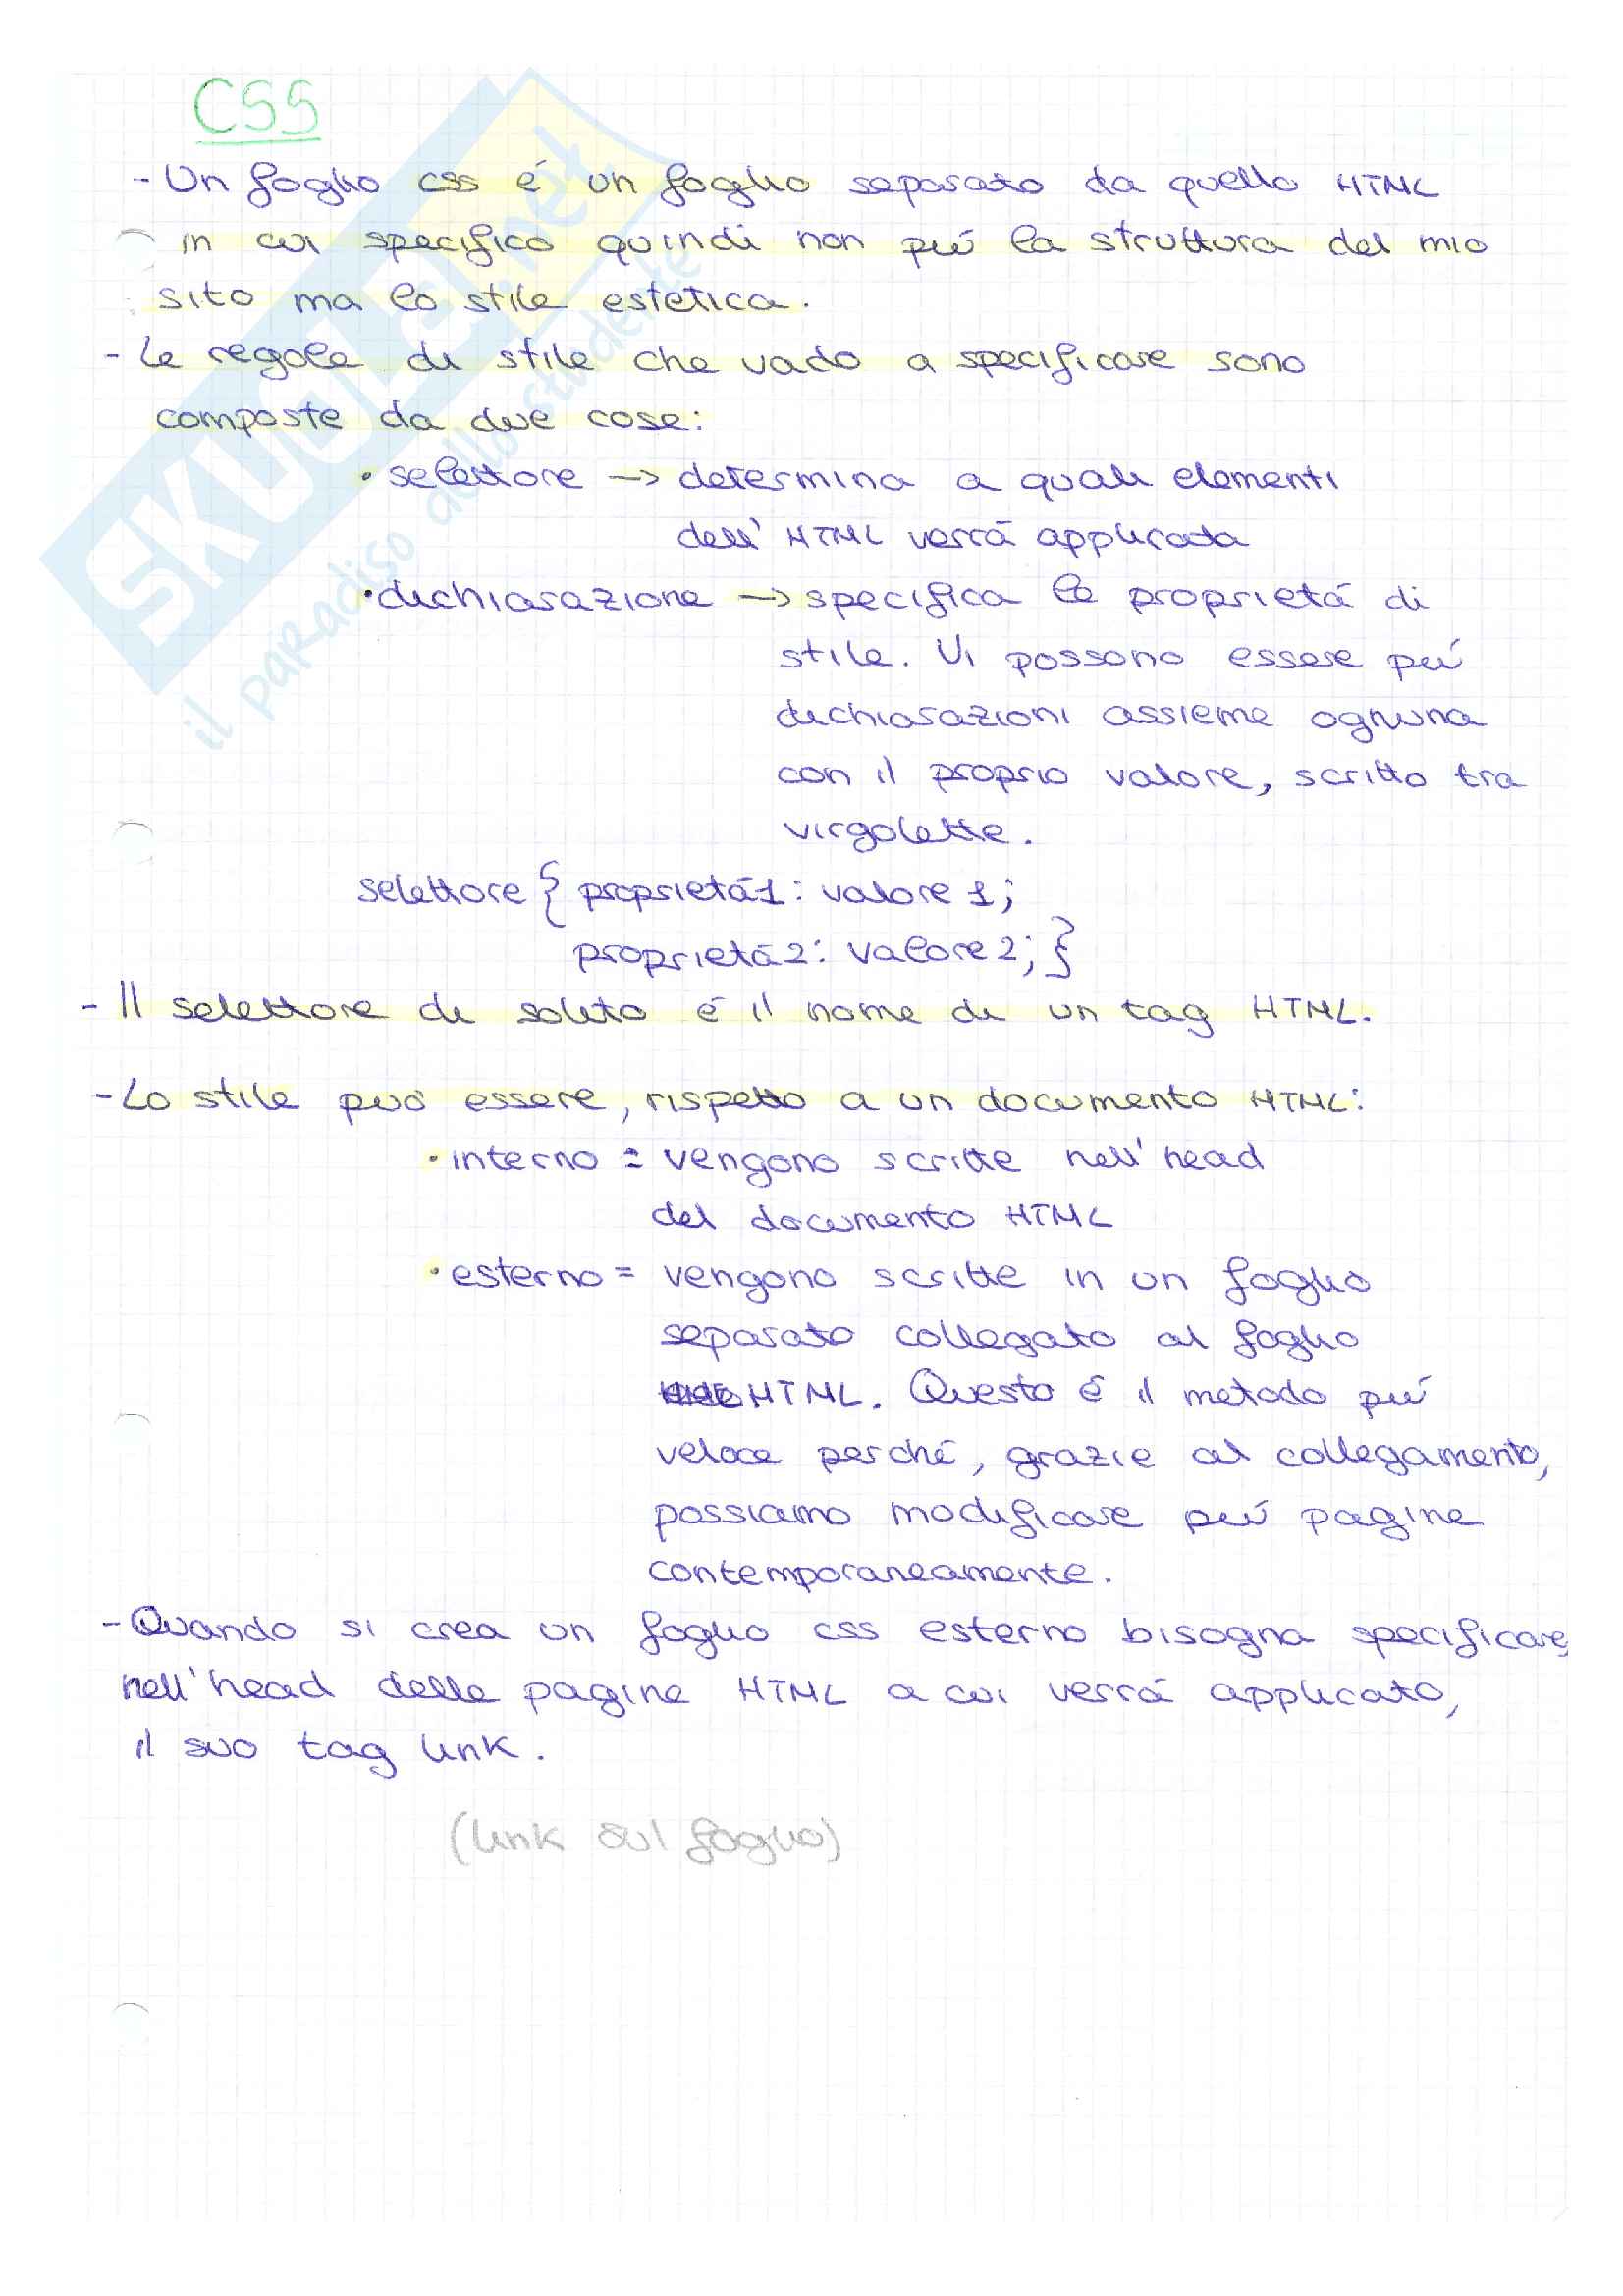 CSS
- Un foglio css é un foglio separato da quello HTML
in cui specifico quindi non piú la struttura del mio
sito ma lo stile estetica.
- Le regole di stile che vado a specificare sono
composte da due cose:
• selettore -> determina a quali elementi
dell' HTML verrá applicata
• dichiarazione -> specifica le proprietá di
stile. Vi possono essere piú
dichiarazioni assieme ognuna
con il proprio valore, scritto tra
virgolette.
selettore { proprietá1: valore 1;
proprietá2: valore 2; }
- Il selettore di solito é il nome di un tag HTML.
- Lo stile puó essere, rispetto a un documento HTML:
• interno = vengono scritte nell'head
del documento HTML
• esterno = vengono scritte in un foglio
separato collegato al foglio
HTML. Questo é il metodo piú
veloce perché, grazie al collegamento,
possiamo modificare piú pagine
contemporaneamente.
- Quando si crea un foglio css esterno bisogna specificare,
nell'head delle pagine HTML a cui verrá applicato,
il suo tag link.
(link sul foglio)
SKUOLA.net
il paradiso dello studente